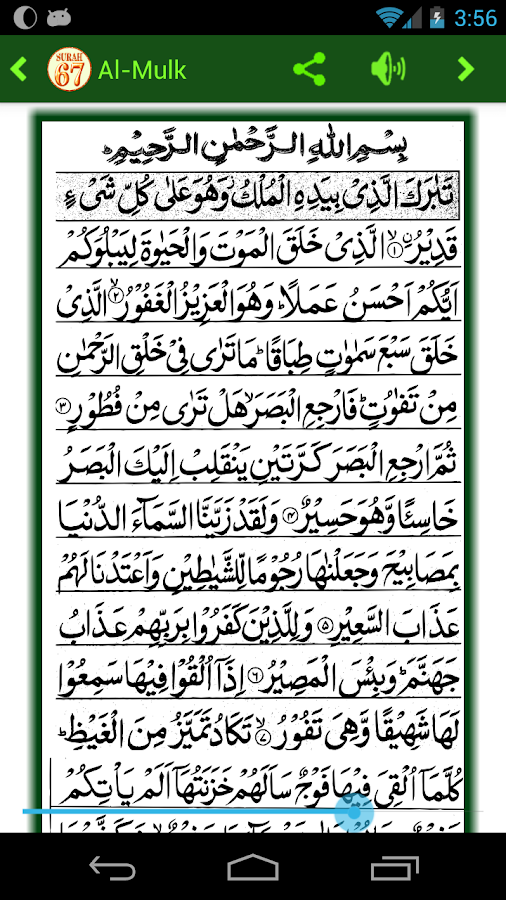 3:56
SURAH 67 Al-Mulk
بِسْمِ اللهِ الرَّحْمٰنِ الرَّحِيْمِ
تَبٰرَكَ الَّذِىْ بِيَدِهِ الْمُلْكُ وَهُوَ عَلٰى كُلِّ شَىْءٍ
قَدِيْرُ ۨ ۙ‏﴿۱﴾ الَّذِىْ خَلَقَ الْمَوْتَ وَالْحَيٰوةَ لِيَبْلُوَكُمْ
اَيُّكُمْ اَحْسَنُ عَمَلًا ؕ وَهُوَ الْعَزِيْزُ الْغَفُوْرُ ۙ﴿۲﴾ الَّذِىْ
خَلَقَ سَبْعَ سَمٰوٰتٍ طِبَاقًا ؕ مَا تَرٰى فِىْ خَلْقِ الرَّحْمٰنِ
مِنْ تَفٰوُتٍ ؕ فَارْجِعِ الْبَصَرَ ۙ هَلْ تَرٰى مِنْ فُطُوْرٍ ﴿۳﴾
ثُمَّ ارْجِعِ الْبَصَرَ كَرَّتَيْنِ يَنْقَلِبْ اِلَيْكَ الْبَصَرُ
خَاسِئًا وَّهُوَ حَسِيْرٌ ﴿۴﴾ وَلَقَدْ زَيَّنَّا السَّمَآءَ الدُّنْيَا
بِمَصَابِيْحَ وَجَعَلْنٰهَا رُجُوْمًا لِّلشَّيٰطِيْنِ وَاَعْتَدْنَا لَهُمْ
عَذَابَ السَّعِيْرِ ﴿۵﴾ وَلِلَّذِيْنَ كَفَرُوْا بِرَبِّهِمْ عَذَابُ
جَهَنَّمَ ؕ وَبِئْسَ الْمَصِيْرُ ﴿۶﴾ اِذَآ اُلْقُوْا فِيْهَا سَمِعُوْا
لَهَا شَهِيْقًا وَّهِىَ تَفُوْرُ ۙ﴿۷﴾ تَكَادُ تَمَيَّزُ مِنَ الْغَيْظِ ؕ
كُلَّمَآ اُلْقِىَ فِيْهَا فَوْجٌ سَاَلَهُمْ خَزَنَتُهَآ اَلَمْ يَاْتِكُمْ